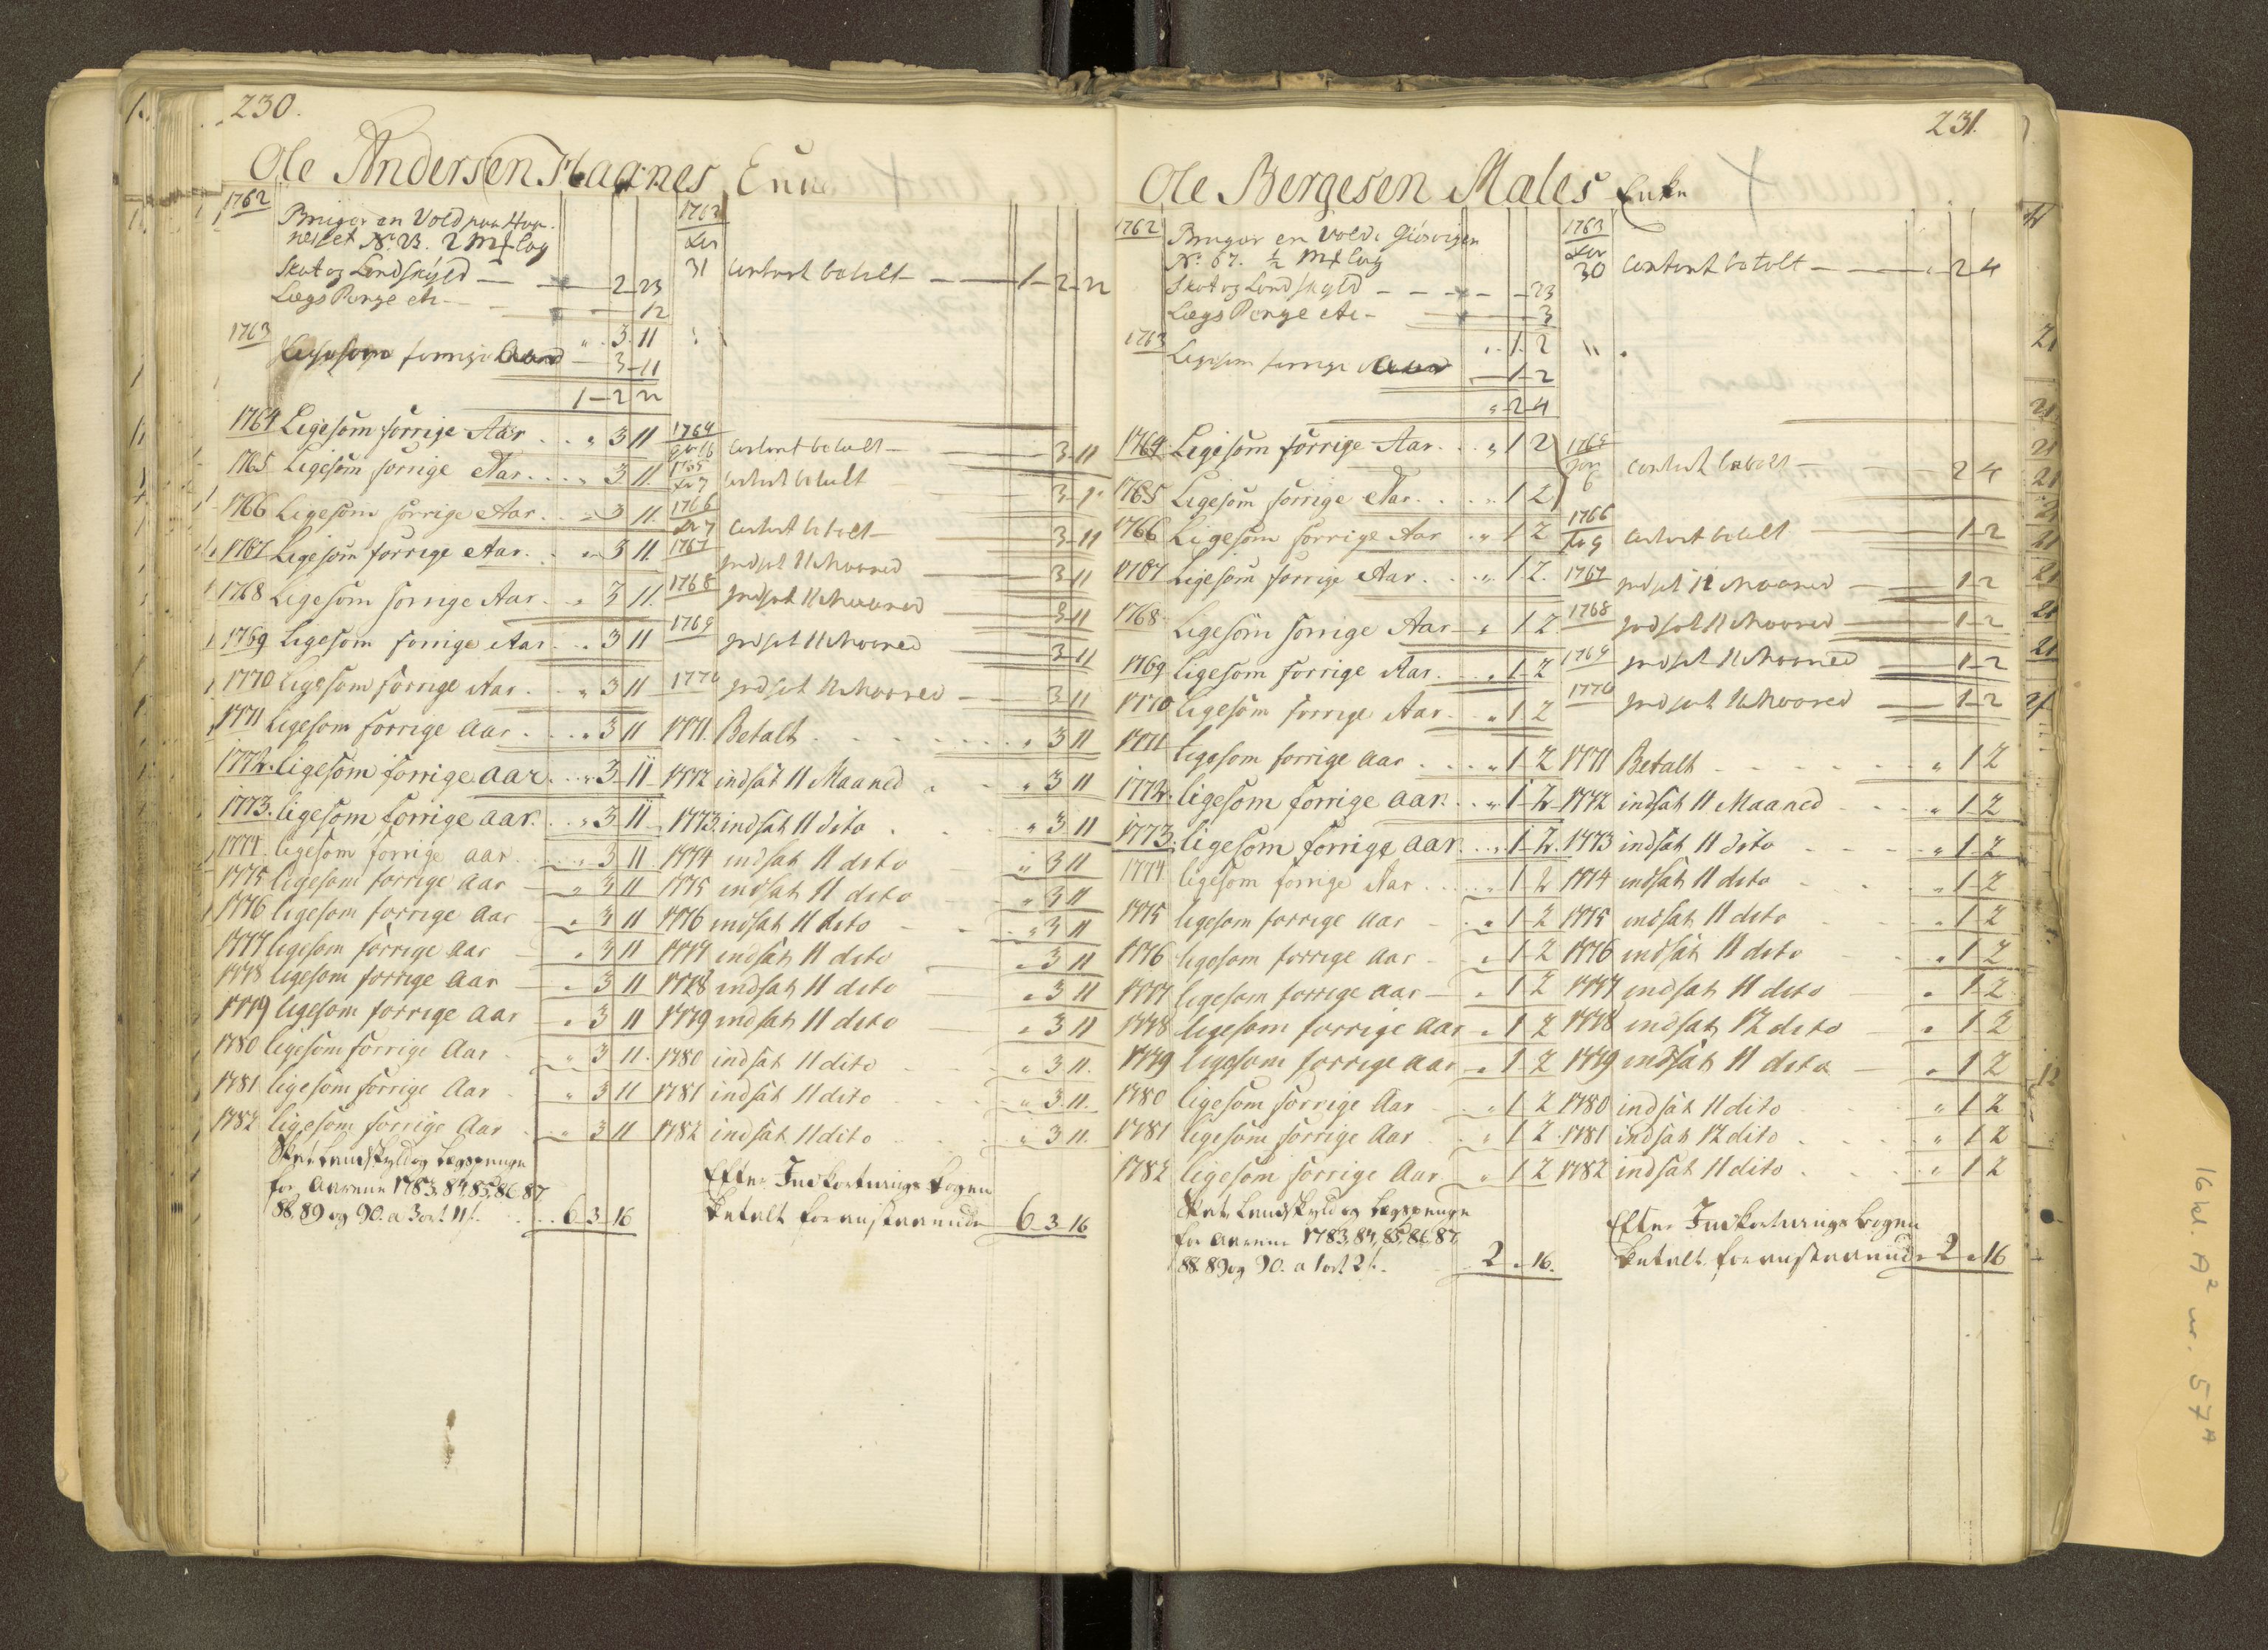 230.
Ole Andersen Haanes
1762
Bruger en Vold paa Haa-
neset No. 23. 2 Mk lag
Skat og Landskyld — 2-23
Lægs Penge etc — 12
" . 3. 11
1763 Ligesom forrige Aar — 3-11
1-2-22
1764 Ligesom forrige Aar . . " 3 11
1765 Ligesom forrige Aar . . . . " 3 11.
1766 Ligesom forrige Aar . . " 3 11.
1767 Ligesom forrige Aar . . " 3 11
1768 Ligesom forrige Aar . . " 3 11.
1769 Ligesom forrige Aar . . " 3 11
1770 Ligesom forrige Aar . . " 3 11
1771 Ligesom forrige Aar . . . . " 3 11
1772. ligesom forrige aar . . . " 3-11
1773. ligesom forrige aar. . . " 3 11
1774 ligesom forrige aar . . . " 3 11
1775 ligesom forrige Aar — " 3 11
1776 ligesom forrige Aar — " 3 11
1777 ligesom forrige Aar — " 3 11
1778 ligesom forrige Aar — " 3 11
1779 ligesom forrige Aar — " 3 11
1780 ligesom forrige Aar . . " 3 11.
1781 ligesom forrige Aar . . " 3 11
1782 ligesom forrige Aar . . " 3 11
Skat, Landskyld og Lægspenge
for Aarene 1783, 84, 85, 86, 87
88, 89 og 90. a 3 ort 11 s. . . . 6 3 16
1763
31 Contant betalt — 1-2-22
1764
16 Contant betalt — 3-11
1765
7 Contant betalt — 3-11
1766
7 Contant betalt — 3-11
1767 Indsat 11 Maaned — 3-11
1768 Indsat 11 Maaned — 3-11
1769 Indsat 11 Maaned — 3-11
1770 Indsat 11 Maaned — 3-11
1771. Betalt . . . . " 3 11
1772 indsat 11 Maaned . . " 3 11
1773. indsat 11 dito . . . " 3 11
1774 indsat 11 dito — " 3 11
1775 indsat 11 dito — " 3 11
1776 indsat 11 dito — " 3 11
1777 indsat 11 dito — " 3 11
1778 indsat 11 dito — " 3 11
1779 indsat 11 dito — " 3 11
1780 indsat 11 dito . . . " 3 11.
1781 indsat 11 dito . . . " 3. 11.
1782 indsat 11 dito . . . " 3 11.
Efter Indkortnings bogen
betalt foranstaaende 6 3 16
231.
Ole Bergesen Males Enke
1762
Bruger en Vold i Giösvigen
No. 67. ½ Mk lag
Skat og Landskyld — 23
Lægs Penge etc — 3
" . 1. 2
1763 Ligesom forrige Aar — 1-2
" 2-4
1764 Ligesom forrige Aar. . . " 1 2
1765 Ligesom forrige Aar. . . . " 1 2
1766 Ligesom forrige Aar . . " 1 2
1767 Ligesom forrige Aar. . . " 1 2.
1768 Ligesom forrige Aar — " 1 2
1769 ligesom forrige Aar. . . . " 1-2
1770 ligesom forrige Aar . . " 1 2
1771 ligesom forrige Aar . . . . " 1 2
1772. ligesom forrige aar. . . " 1-2
1773. ligesom forrige aar. . . " 1-2.
1774 ligesom forrige Aar . . . . " 1 2
1775 ligesom forrige Aar — " 1-2
1776 ligesom forrige Aar — " 1-2
1777 ligesom forrige Aar — " 1 2
1778 ligesom forrige Aar " 1 2
1779 ligesom forrige Aar " 1 2
1780 ligesom forrige Aar . . " 1 2
1781 ligesom forrige Aar . . " 1 2
1782 ligesom forrige Aar. . " 1 2
Skat, Landskyld og Lægspenge
for Aarene 1783, 84, 85, 86, 87,
88. 89 og 90. a 1 ort 2 s. . . 2 " 16.
1763
30 Contant betalt — " -2-4
1765
Jan
6 Contant betalt — 2 4
1766
9 Contant betalt — 1-2
1767 Indsat 11 Maaned — 1-2
1768 Indsat 11 Maaned — 1-2
1769 Indsat 11 Maaned — 1-2
1770 Indsat 11 Maaned — 1-2
1771 Betalt . . . . " 1 2
1772 indsat 11 Maaned . . " 1-2
1773 indsat 11 dito . . . " 1-2
1774 indsat 11 dito . . . " 1-2
1775 indsat 11 dito — " 1-2
1776 indsat 11 dito — " 1 2
1777 indsat 11 dito — " 1-2
1778 indsat 12 dito — " 1-2
1779 indsat 11 dito — " 1 2
1780 indsat 11 dito . . . " 1 2
1781 indsat 12 dito . . . " 1 2
1782 indsat 11 dito . . . " 1 2
Efter Indkortnings bogen
betalt foranstaaende 2 " 16
16 kl. A² nr. 57ᴬ